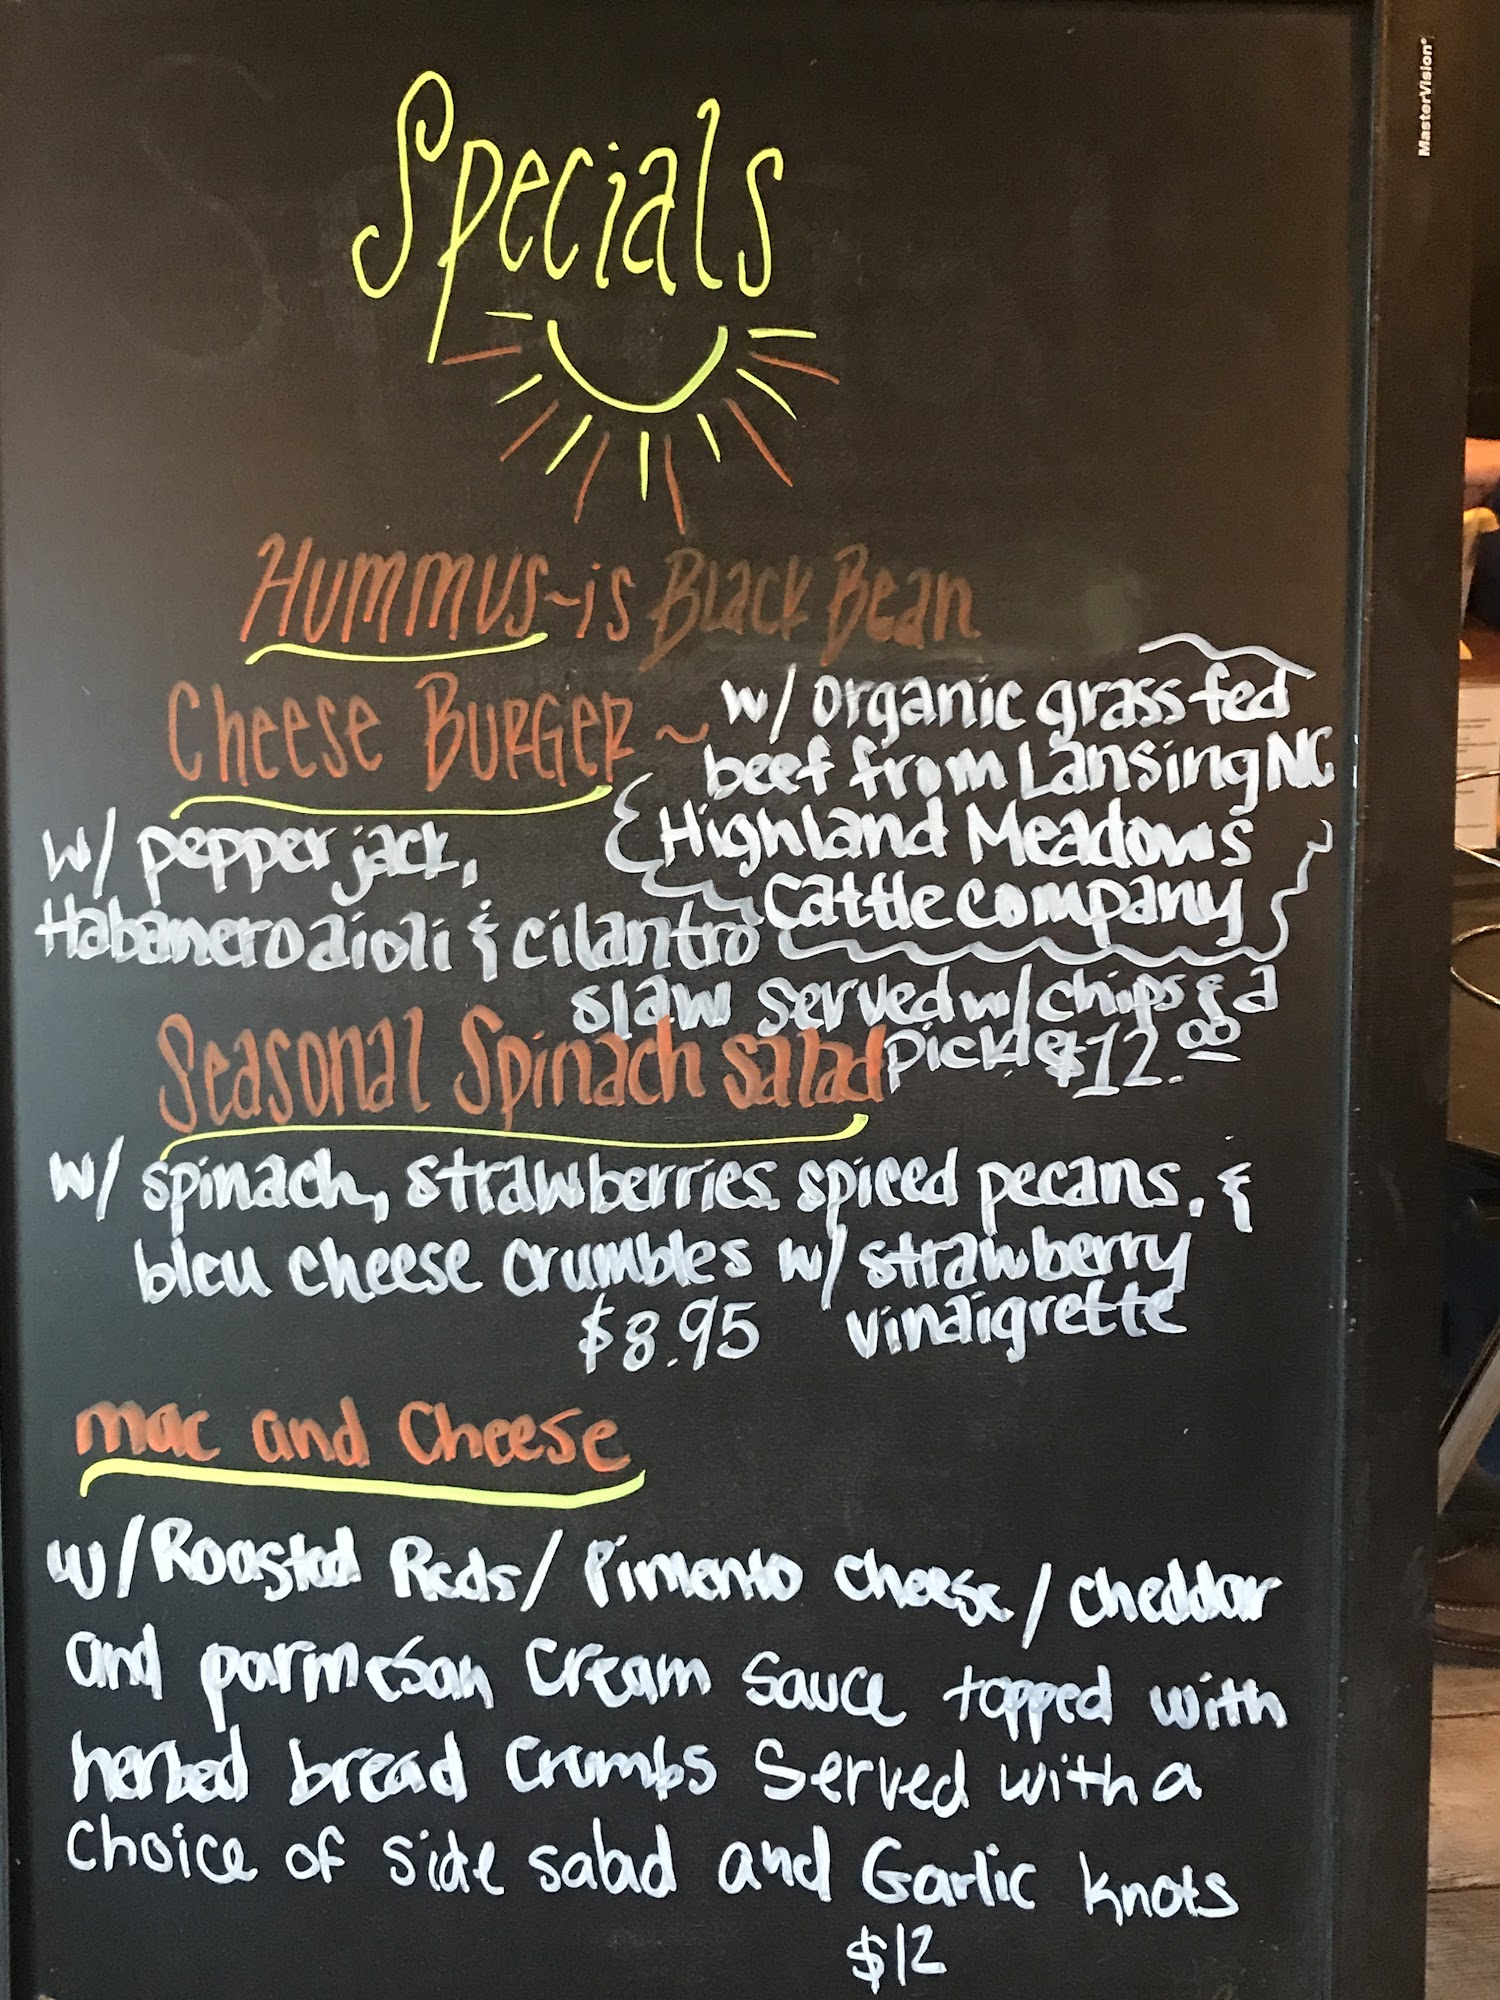 MasterVision
Specials
Hummus ~ is Black Bean
Cheese Burger ~ w/ organic grass fed
beef from Lansing NC
Highland Meadows
Cattle company
w/ pepper jack,
Habanero aioli & cilantro
slaw served w/ chips & a
pickle $12.00
Seasonal Spinach Salad
w/ spinach, strawberries, spiced pecans, &
bleu cheese crumbles w/ strawberry
vinaigrette
$8.95
mac and Cheese
w/ Roasted Reds / Pimento cheese / cheddar
and parmesan cream sauce topped with
herbed bread crumbs Served with a
choice of side salad and Garlic knots
$12